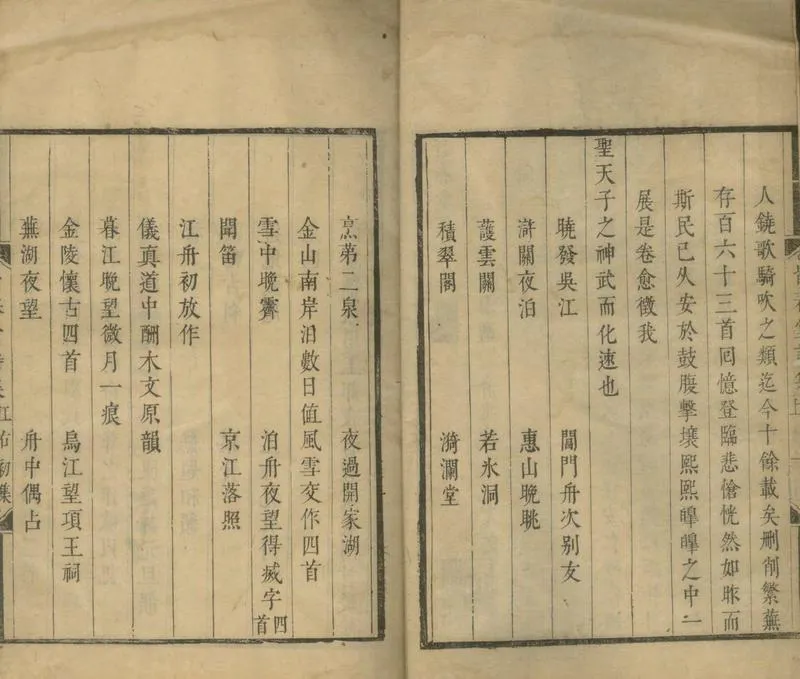 人鐃歌騎吹之類迄今十餘載矣刪削繁蕪
存百六十三首回憶登臨悲愴恍然如昨而
斯民已久安於鼓腹擊壤熙熙皥皥之中一
展是卷愈徵我
聖天子之神武而化速也
曉發吳江　閶門舟次别友
滸關夜泊　惠山晚眺
護雲關　若氷洞
積翠閣　漪瀾堂
烹苐二泉　夜過開家湖
金山南岸泊數日值風雪交作四首
雪中晚霽　泊舟夜望得滅字四首
聞笛　京江落照
江舟初放作
儀真道中酬木文原韻
暮江晚望微月一痕
金陵懷古四首　烏江望項王祠
蕪湖夜望　舟中偶占